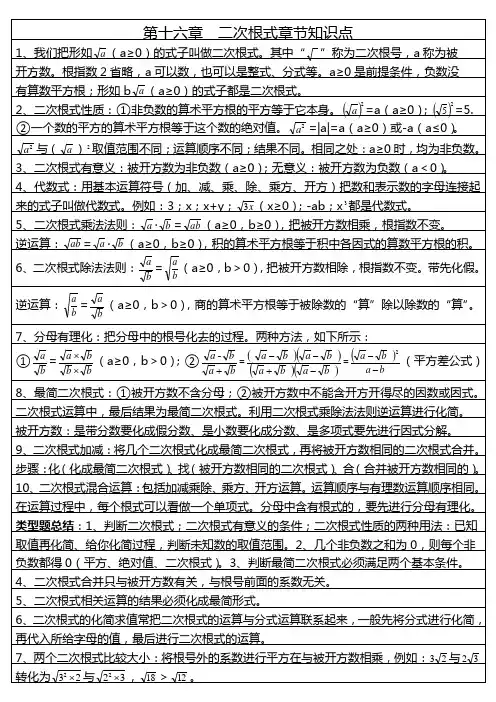 第十六章 二次根式章节知识点
1、我们把形如√a（a≥0）的式子叫做二次根式。其中“√‾”称为二次根号，a称为被
开方数。根指数2省略，a可以数，也可以是整式、分式等。a≥0是前提条件，负数没
有算数平方根；形如b√a（a≥0）的式子都是二次根式。
2、二次根式性质：①非负数的算术平方根的平方等于它本身。(√a)²=a（a≥0）；(√5)²=5.
②一个数的平方的算术平方根等于这个数的绝对值。√a²=|a|=a（a≥0）或-a（a≤0）。
√a²与（√a）²取值范围不同；运算顺序不同；结果不同。相同之处：a≥0时，均为非负数。
3、二次根式有意义：被开方数为非负数（a≥0）；无意义：被开方数为负数（a＜0）。
4、代数式：用基本运算符号（加、减、乘、除、乘方、开方）把数和表示数的字母连接起
来的式子叫做代数式。例如：3；x；x+y；√3x（x≥0）；-ab；x³都是代数式。
5、二次根式乘法法则：√a·√b=√ab（a≥0，b≥0），把被开方数相乘，根指数不变。
逆运算：√ab=√a·√b（a≥0，b≥0），积的算术平方根等于积中各因式的算数平方根的积。
6、二次根式除法法则：√a/√b=√(a/b)（a≥0，b＞0），把被开方数相除，根指数不变。带先化假。
逆运算：√(a/b)=√a/√b（a≥0，b＞0），商的算术平方根等于被除数的“算”除以除数的“算”。
7、分母有理化：把分母中的根号化去的过程。两种方法，如下所示：
①√a/√b=(√a×√b)/(√b×√b)（a≥0，b＞0）；②(√a-√b)/(√a+√b)=(√a-√b)(√a-√b)/(√a+√b)(√a-√b)=(√a-√b)²/(a-b)（平方差公式）
8、最简二次根式：①被开方数不含分母；②被开方数中不能含开方开得尽的因数或因式。
二次根式运算中，最后结果为最简二次根式。利用二次根式乘除法法则逆运算进行化简。
被开方数：是带分数要化成假分数、是小数要化成分数、是多项式要先进行因式分解。
9、二次根式加减：将几个二次根式化成最简二次根式，再将被开方数相同的二次根式合并。
步骤：化（化成最简二次根式）、找（被开方数相同的二次根式）、合（合并被开方数相同的）。
10、二次根式混合运算：包括加减乘除、乘方、开方运算。运算顺序与有理数运算顺序相同。
在运算过程中，每个根式可以看做一个单项式。分母中含有根式的，要先进行分母有理化。
类型题总结：1、判断二次根式；二次根式有意义的条件；二次根式性质的两种用法：已知
取值再化简、给你化简过程，判断未知数的取值范围。2、几个非负数之和为0，则每个非
负数都得0（平方、绝对值、二次根式）。3、判断最简二次根式必须满足两个基本条件。
4、二次根式合并只与被开方数有关，与根号前面的系数无关。
5、二次根式相关运算的结果必须化成最简形式。
6、二次根式的化简求值常把二次根式的运算与分式运算联系起来，一般先将分式进行化简，
再代入所给字母的值，最后进行二次根式的运算。
7、两个二次根式比较大小：将根号外的系数进行平方在与被开方数相乘，例如：3√2与2√3
转化为√(3²×2)与√(2²×3)，√18＞√12。